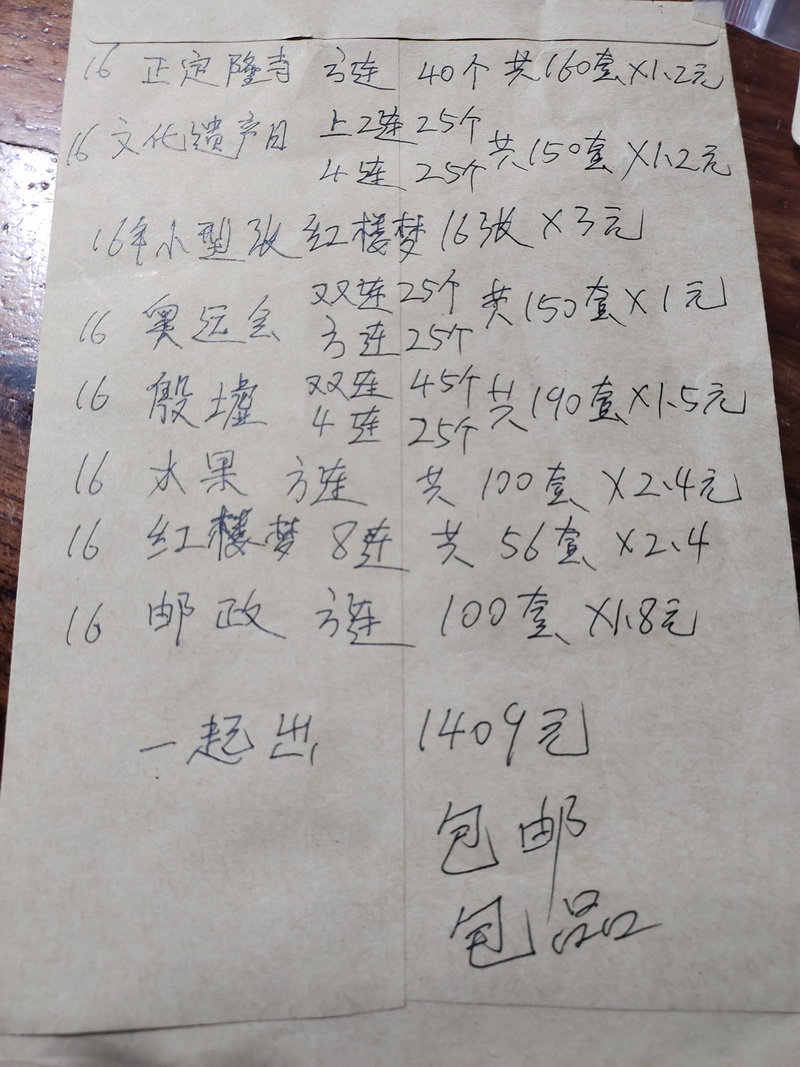 16 正定隆寺 方连 40个 共160套×1.2元
16 文化遗产日 上2连 25个
4连 25个 共150套×1.2元
16年小型张 红楼梦 16张×3元
16 奥运会 双连 25个 共150套×1元
方连 25个
16 殷墟 双连 45个 共190套×1.5元
4连 25个
16 水果 方连 共 100套×2.4元
16 红楼梦 8连 共 56套×2.4
16 邮政 方连 100套×1.8元
一起出 1409元
包邮
包品